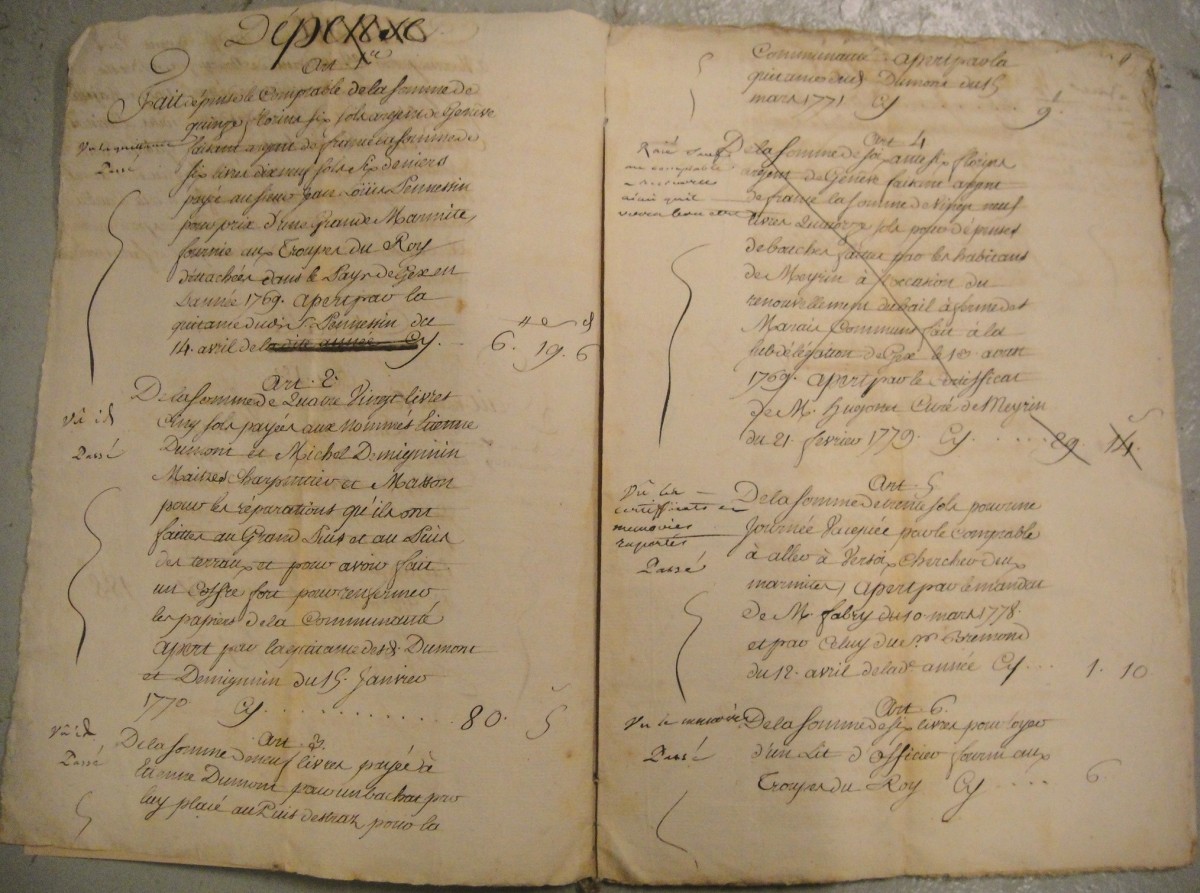 Dépense
Art. 1er
Fait dépense le Comptable de la somme de
quinze florins six sols argent de Genève
faisant argent de france la somme de
Vu la quittance
Passé
six livres dix neuf sols six deniers
payée au sieur Jean Loüis Pennessin
pour prix d'une Grande Marmite
fournie aux Troupes du Roy
détachées dans le Pays de Gex en
L'année 1769. apert par la
quitance dudit Sr. Pennessin du
14. avril de la dite année Cy. 6. 19. 6
Art. 2e
De la somme de Quatre Vingt livres
Vû id
Cinq sols payées aux nommés Etienne
Passé
Dumont et Michel Demignuin
Maitres Charpentier et Masson
pour les réparations qu'ils ont
faittes au Grand Puis et au Puis
des terraux et pour avoir fait
un Coffre fort pour renfermer
les papiers de la Communauté
apert par la quitance desd. Dumont
et Demignuin du 15. Janvier
1770. Cy 80. 5
Art. 3.
Vû id
Passé
De la somme de neuf livres payée à
Etienne Dumont pour un bachat par
luy placé au Puis destraz pour la
Communauté apert par la
quitance dud. Dumont du 15
mars 1771 Cy 9.
Art. 4
De la somme de soixante six florins
Raié sauf
au comptable
a recouvrer
ainsi qu'il
verra bon etre
argent de Genève faisant argent
de france la somme de Vingt neuf
livres Quatorze sols pour dépenses
de bouches faittes par les habitans
de Meyrin à l'occasion du
renouvellement du bail à ferme des
Marais Communs fait à la
subdélégation de Gex le 18. aoust
1769. apert par le Certifficat
de M. Hugonet Curé de Meyrin
du 21. fevrier 1779. Cy 29. 14.
Art. 5
Vû les
certifficats et
memoires
raportés
Passé
De la somme de trente sols pour une
Journée Vacquée par le Comptable
à aller à Versoix Chercher deux
marmites, apert par le mandat
de M. fabry du 10. mars 1778.
et par Celuy du Sr. Bremond
du 12. avril de lad. année Cy 1. 10
Art. 6.
Vu le memoire
Passé
De la somme de six livres pour loyer
d'un Lit d'officier fourni aux
Troupes du Roy Cy 6.